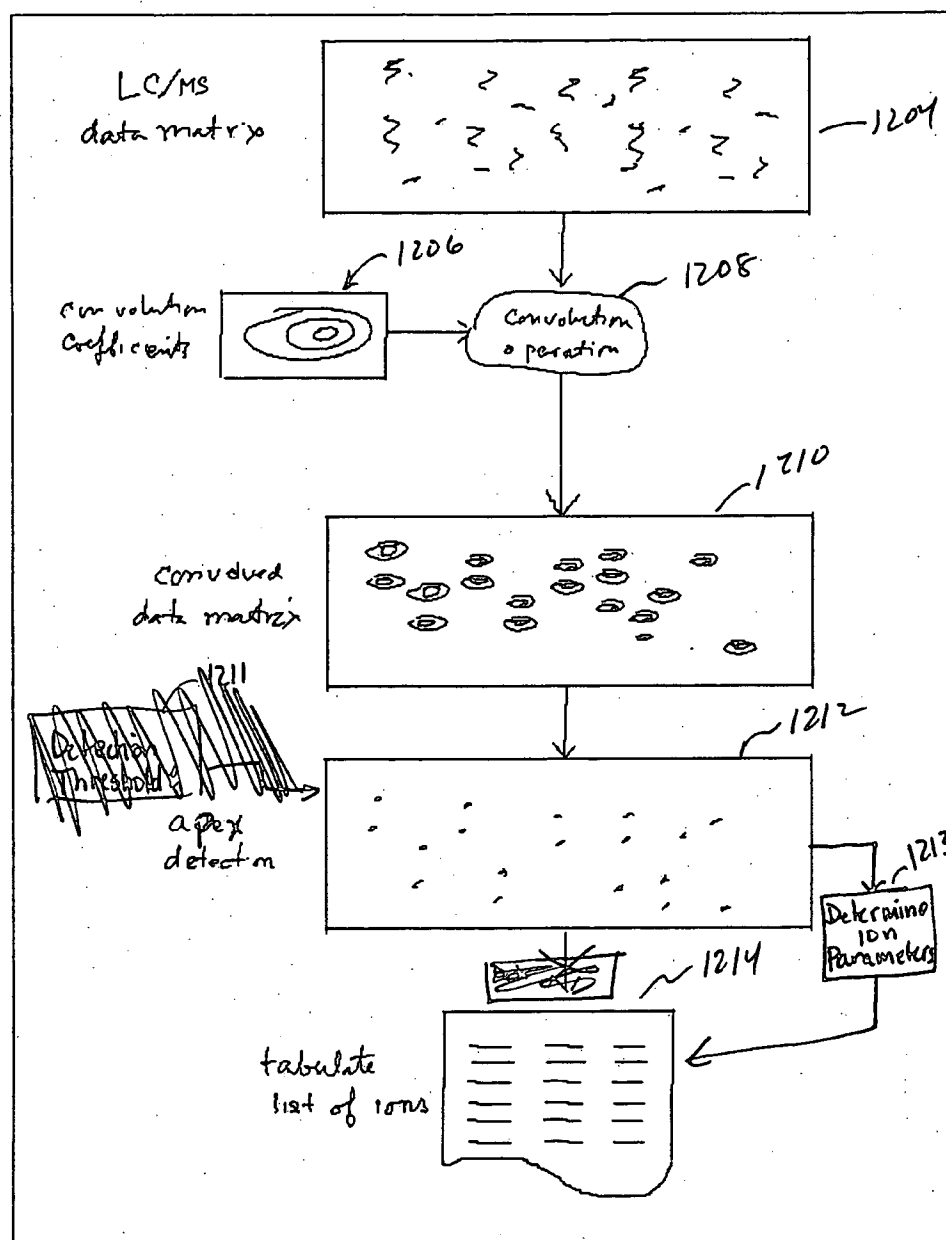 LC/MS
data matrix
1204
1206
convolution
coefficients
1208
Convolution
operation
1210
convolved
data matrix
1211
Detection
Threshold
1212
apex
detection
1213
Determine
Ion
Parameters
1214
tabulate
list of ions